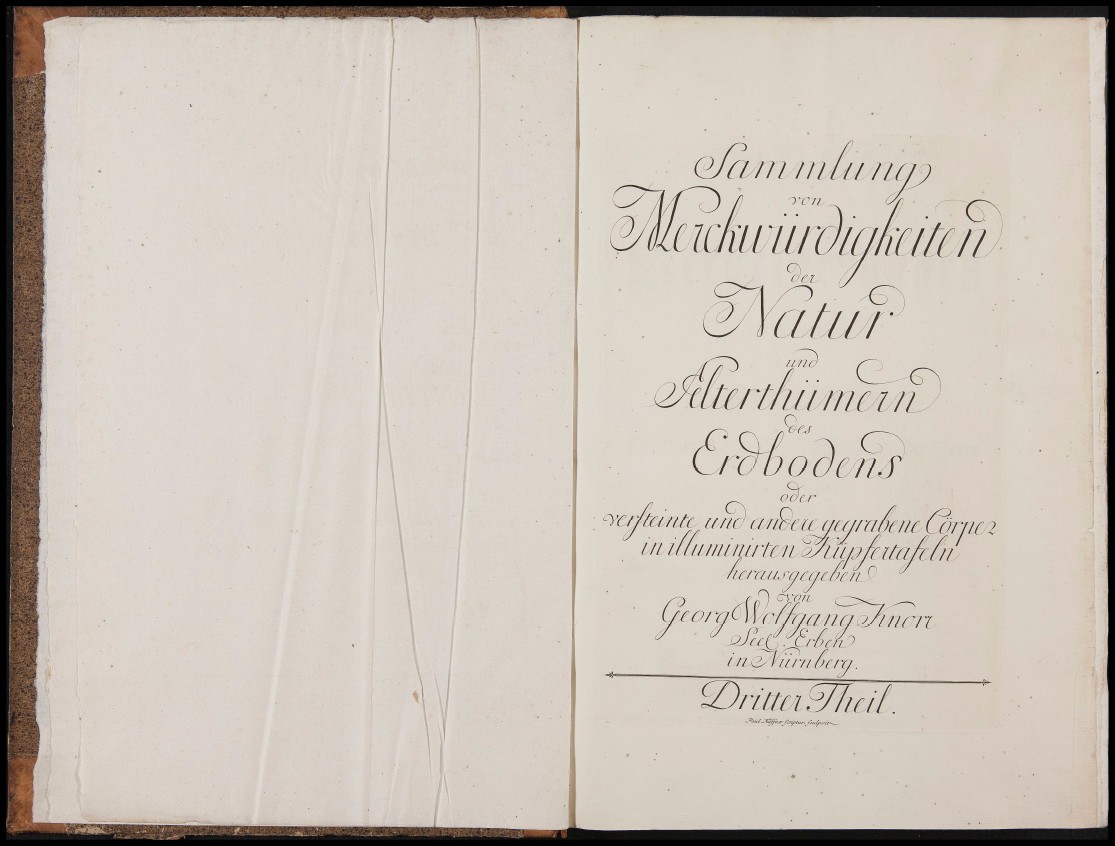 Sammlung
von
Merckwürdigkeiten
der
Natur
und
Alterthümern
des
Erdbodens
oder
versteinte und andere gegrabene Cörper
in illuminirten Kupfertafeln
herausgegeben
von
Georg Wolfgang Knorr
Seel. Erben
in Nürnberg.
Dritter Theil.
Paul Küffner scriptur sculpsit